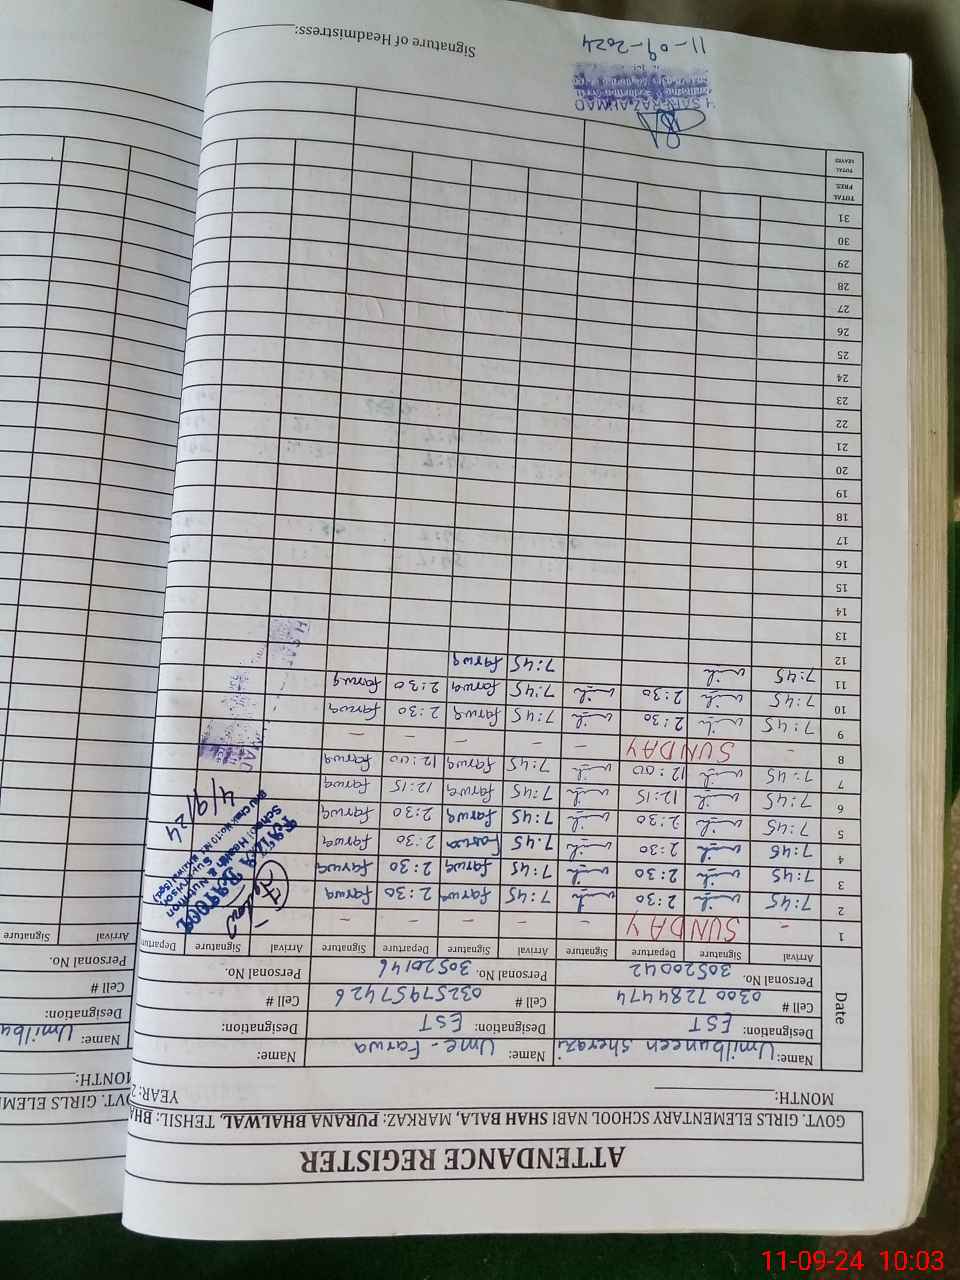 ATTENDANCE REGISTER
GOVT. GIRLS ELEMENTARY SCHOOL NABI SHAH BALA, MARKAZ: PURANA BHALWAL, TEHSIL: BHA
MONTH: YEAR: 2
Date Name: Umilbuneen Sherazi Name: Ume-Farwa Name:
Designation: EST Designation: EST Designation:
Cell # 03007284474 Cell # 03257957426 Cell #
Personal No. 30520042 Personal No. 30520146 Personal No.
Arrival Signature Departure Signature Arrival Signature Departure Signature Arrival Signature Departure
1 - SUNDAY - - - - -
2 7:45 2:30 7:45 farwa 2:30 farwa
3 7:45 2:30 7:45 farwa 2:30 farwa
4 7:45 2:30 7:45 farwa 2:30 farwa
5 7:45 2:30 7:45 farwa 2:30 farwa
6 7:45 12:15 7:45 farwa 12:15 farwa
7 7:45 12:00 7:45 farwa 12:00 farwa
8 - SUNDAY - - - - -
9 7:45 2:30 7:45 farwa 2:30 farwa
10 7:45 2:30 7:45 farwa 2:30 farwa
11 7:45 7:45 farwa
12
13
14
15
16
17
18
19
20
21
22
23
24
25
26
27
28
29
30
31
TOTAL PRES.
TOTAL LEAVES
RAZIA BATOOL
School Health & Nutrition
Supervisor
4/9/24
SARFRAZ AHMAD
11-09-2024
Signature of Headmistress:
OVT. GIRLS ELEM
MONTH:
Name: Umilbu
Designation:
Cell #
Personal No.
Arrival Signature
11-09-24 10:03